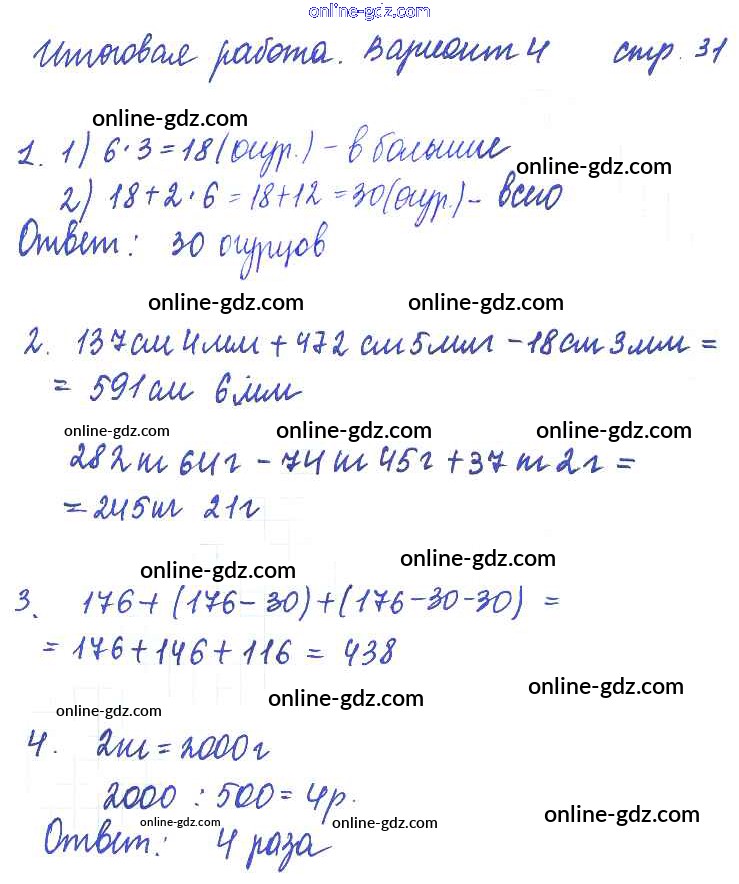 online-gdz.com
Итоговая работа. Вариант 4 стр. 31
online-gdz.com
1. 1) 6·3=18(огур.) - в больших
online-gdz.com
2) 18+2·6=18+12=30(огур.) - всего
Ответ: 30 огурцов
online-gdz.com online-gdz.com
2. 137см 4мм + 472 см 5мм - 18см 3мм =
= 591см 6мм
online-gdz.com online-gdz.com online-gdz.com
282т 64г - 74т 45г + 37т 2г =
= 245т 21г
online-gdz.com online-gdz.com
3. 176+(176-30)+(176-30-30) =
= 176+146+116 = 438
online-gdz.com online-gdz.com
online-gdz.com
4. 2т=2000г
2000 : 500 = 4р.
online-gdz.com online-gdz.com online-gdz.com
Ответ: 4 раза